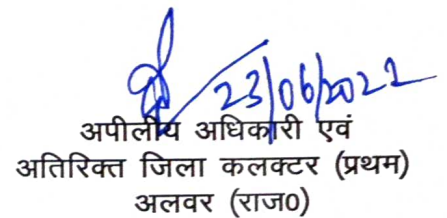 23/06/2022
अपीलीय अधिकारी एवं
अतिरिक्त जिला कलक्टर (प्रथम)
अलवर (राज०)